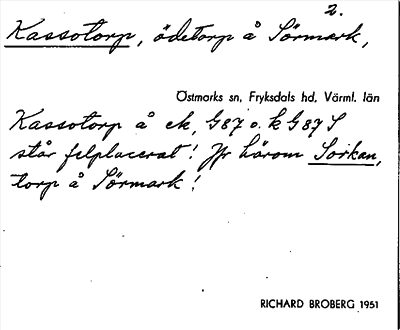 2.
Kassotorp, ödetorp å Sörmark,
Östmarks sn, Fryksdals hd, Värml. län
Kassotorp å ek, G87 o. k G87 S
står felplacerat! Jfr härom Sorkan,
torp å Sörmark!
RICHARD BROBERG 1951